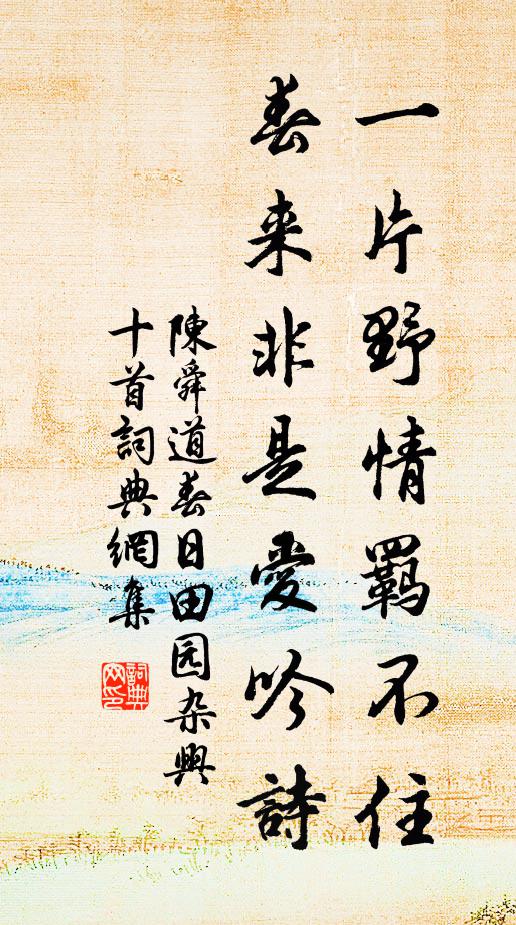 一片野情羁不住
春来非是爱吟詩
陳舜道春日田园杂興
十首詞典網集
詞典
网印